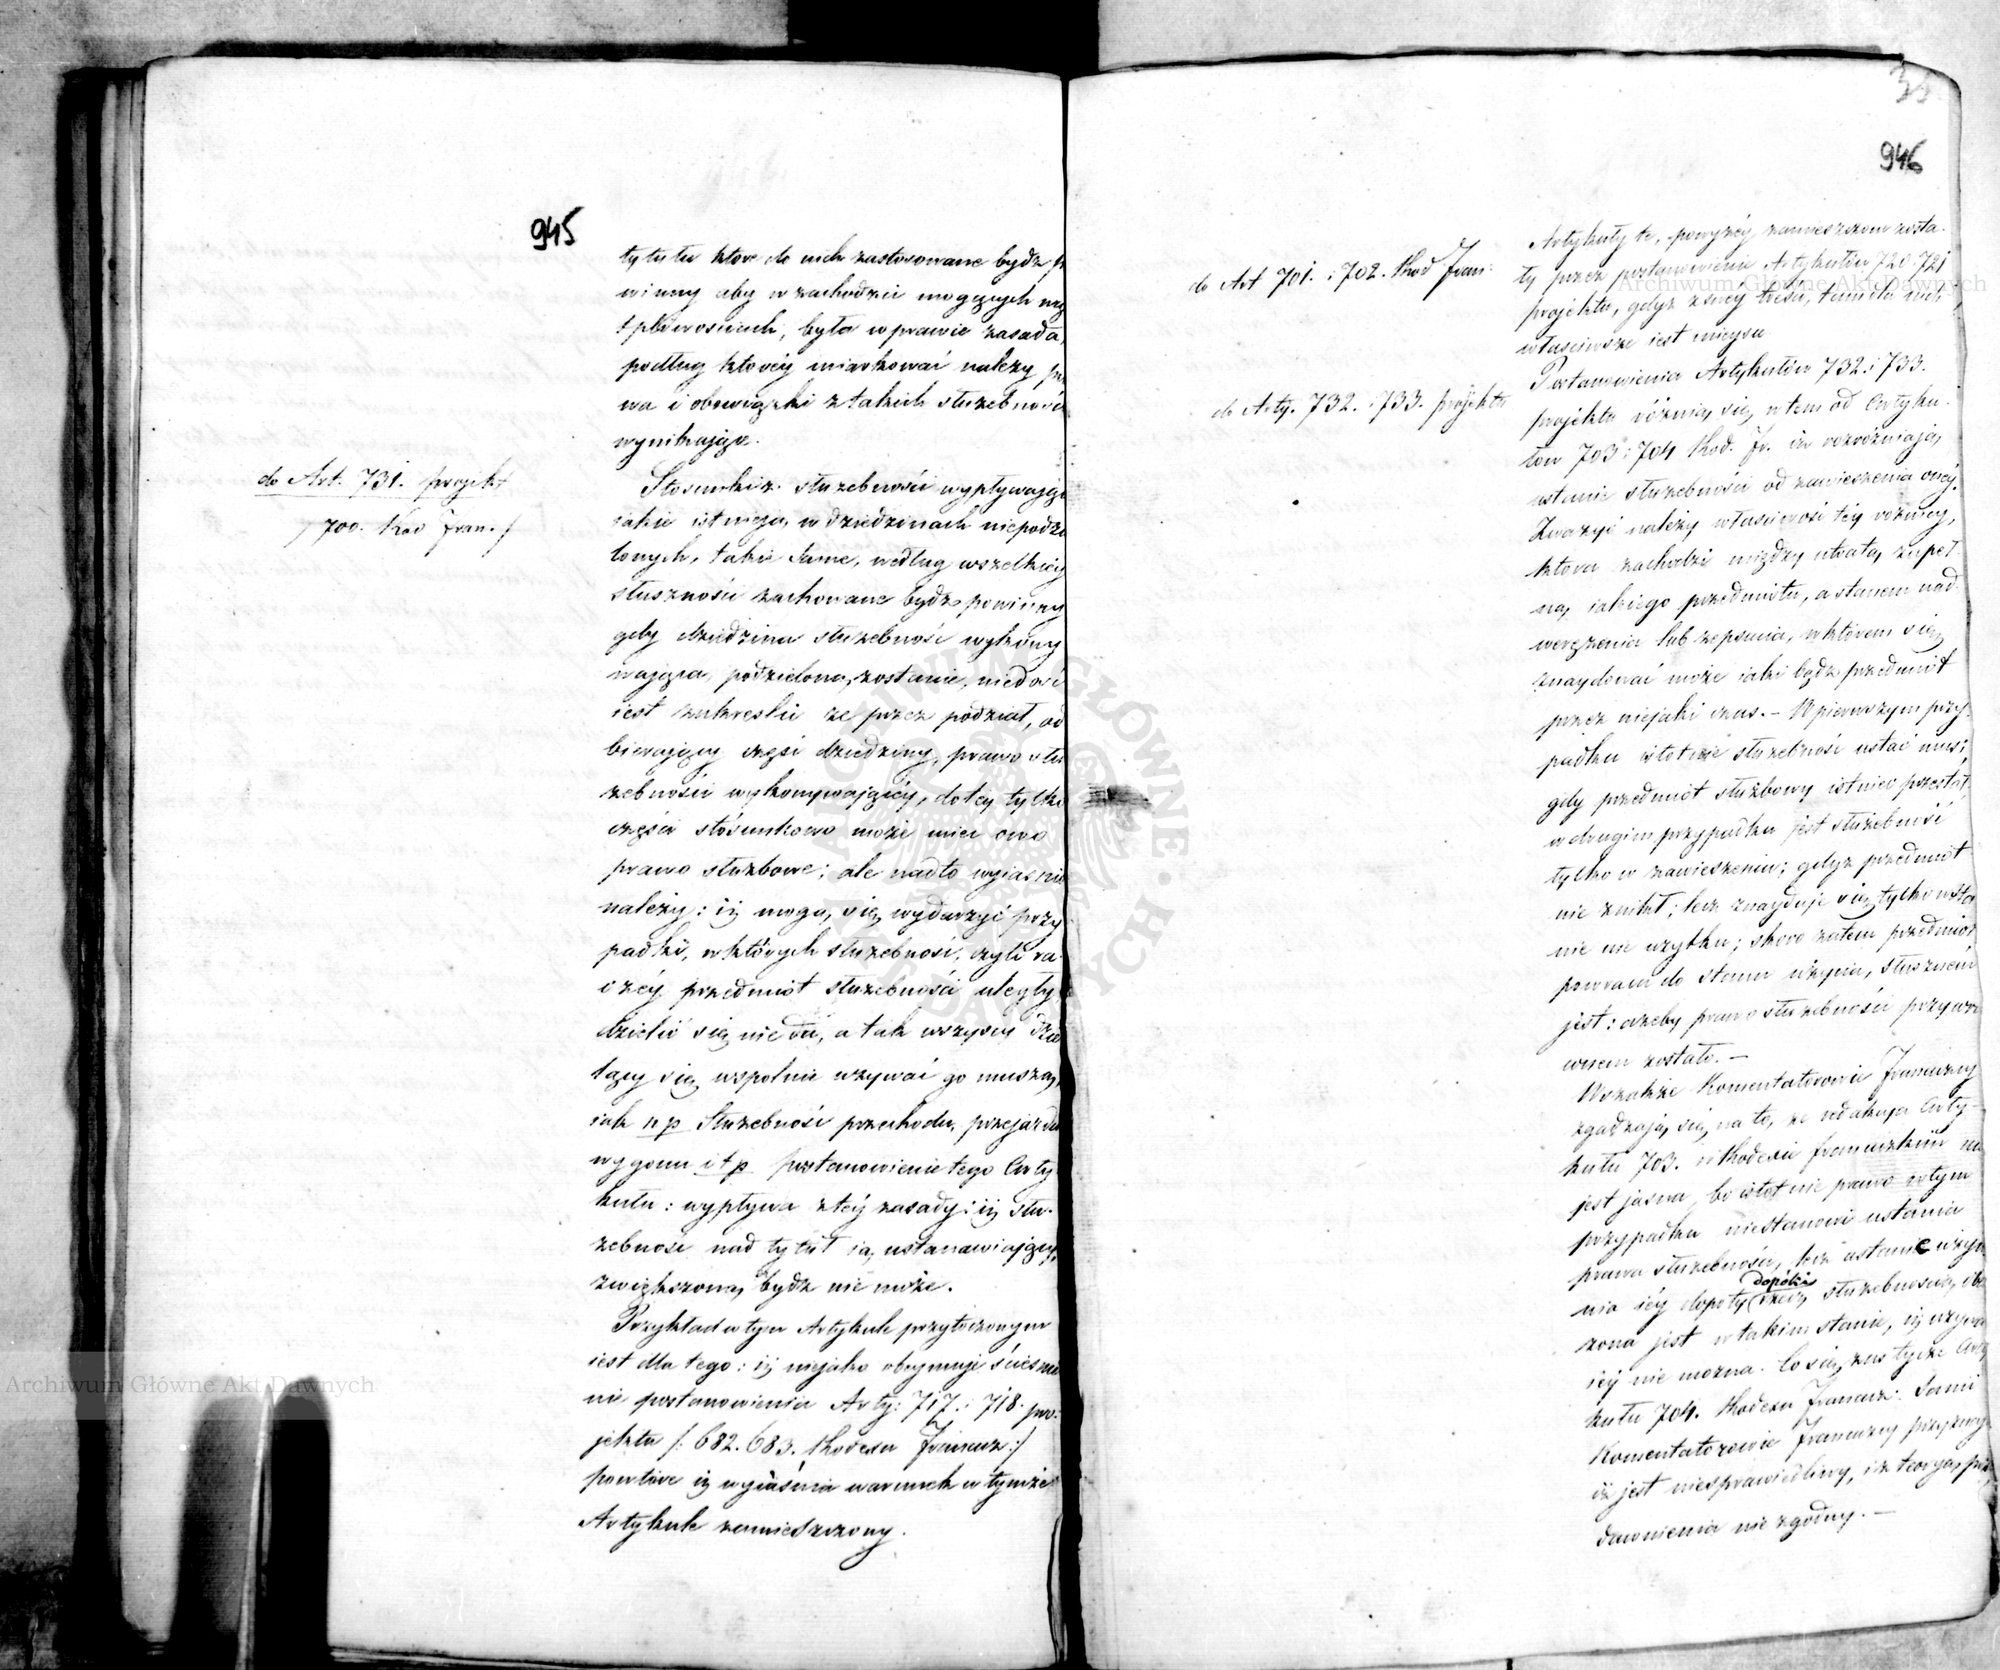 945
tytułu które do nich zastosowane bydź p
winny aby w zachodzić mogących wą
tpliwościach, była w prawie zasada,
podług którey miarkować należy pr
wa i obowiązki z takich służebności
wynikające.
do Art. 731. projekt
/ 700. Kod fran. /
Stosunki z służebności wypływając
jakie istnieją, w dziedzinach niepodzie
lonych, takie same, według wszelkiey
słuszności zachowane bydź powinny
gdy dziedzina służebność wykony
wająca, podzieloną, zostanie, niedość
iest zakreślić że przez podział, od
bierający część dziedziny, prawo słu
żebności wykonywającey, do tey tylko
części stósunkowo może mieć owo
prawo służbowe; ale nadto wyiaśnić
należy: iż mogą, się, wydarzyć przy
padki, w których służebność, czyli ra-
czéy przedmiot służebności uległy
dzielić się nie da, a tak wszyscy dzie
lący się, wspólnie używać go muszą,
iak np Służebność przechodu, przejazdu
wygonu itp postanowienie tego Arty
kułu: wypływa z tey zasady: iż słu-
żebność nad tytuł ią, ustanawiający,
zwiększoną, bydź nie może.
Przykład w tym Artykule przytoczonym
iest dla tego: iż niejako obeymuje ścieśnie
nie postanowienia Arty: 717. i 718. pro-
jektu /: 682. 683. Kodexu Francuz :/
powtóre iż wyiaśnia warunek w tymże
Artykule zamieszczony.
35
946
do Art 701. i 702. Kod Fran:
Artykuły te, powyżéy zamieszczone zosta-
ły przez postanowienie Artykułów 720 721
projektu, gdyż z swey treści, tam dla nich
właściwsze iest mieysce
do Arty. 732. i 733. projektu
Postanowienia Artykułów 732. i 733.
projektu różnią, się, w tem od Artyku-
łów 703 i 704 Kod. fr. iż rozróżniają,
ustanie służebności od zawieszenia onéy.
Zważyć należy właściwość téy różnicy,
która zachodzi między utratą, zupeł-
ną, iakiego przedmiotu, a stanem nad-
werężenia lub zepsucia, w którem się,
znaydować może iaki bądź przedmiot
przez niejaki czas. – W pierwszym przy-
padku istotnie służebność ustać musi,
gdy przedmiot służbowy istnieć przestał,
w drugim przypadku jest służebność
tylko w zawieszeniu; gdyż przedmiot
nie znikł; lecz znayduje się, tylko w sta
nie nie użytku; skoro zatem przedmiot
powraca do stanu użycia, słusznem
jest: ażeby prawo służebności przywró
conem zostało. –
Wszakże Komentatorowie Francuzcy
zgadzają, się, na to, że redakcya Arty-
kułu 703. w Kodexie francuzkim nie
jest jasna, bo istotnie prawo w tym
przypadku niestanowi ustania
prawa służebności, lecz ustanie używa
dopóki
nia iéy dopóty rzecz, służebnością, obcią
żona jest w takim stanie, iż używać
iéy nie można. Co się, zaś tycze Arty
kułu 704. Kodexu Francuz: Sami
Komentatorowie Francuzcy przyznają
iż jest niesprawiedliwy, i z teoryą, prze
dawnienia nie zgodny. –